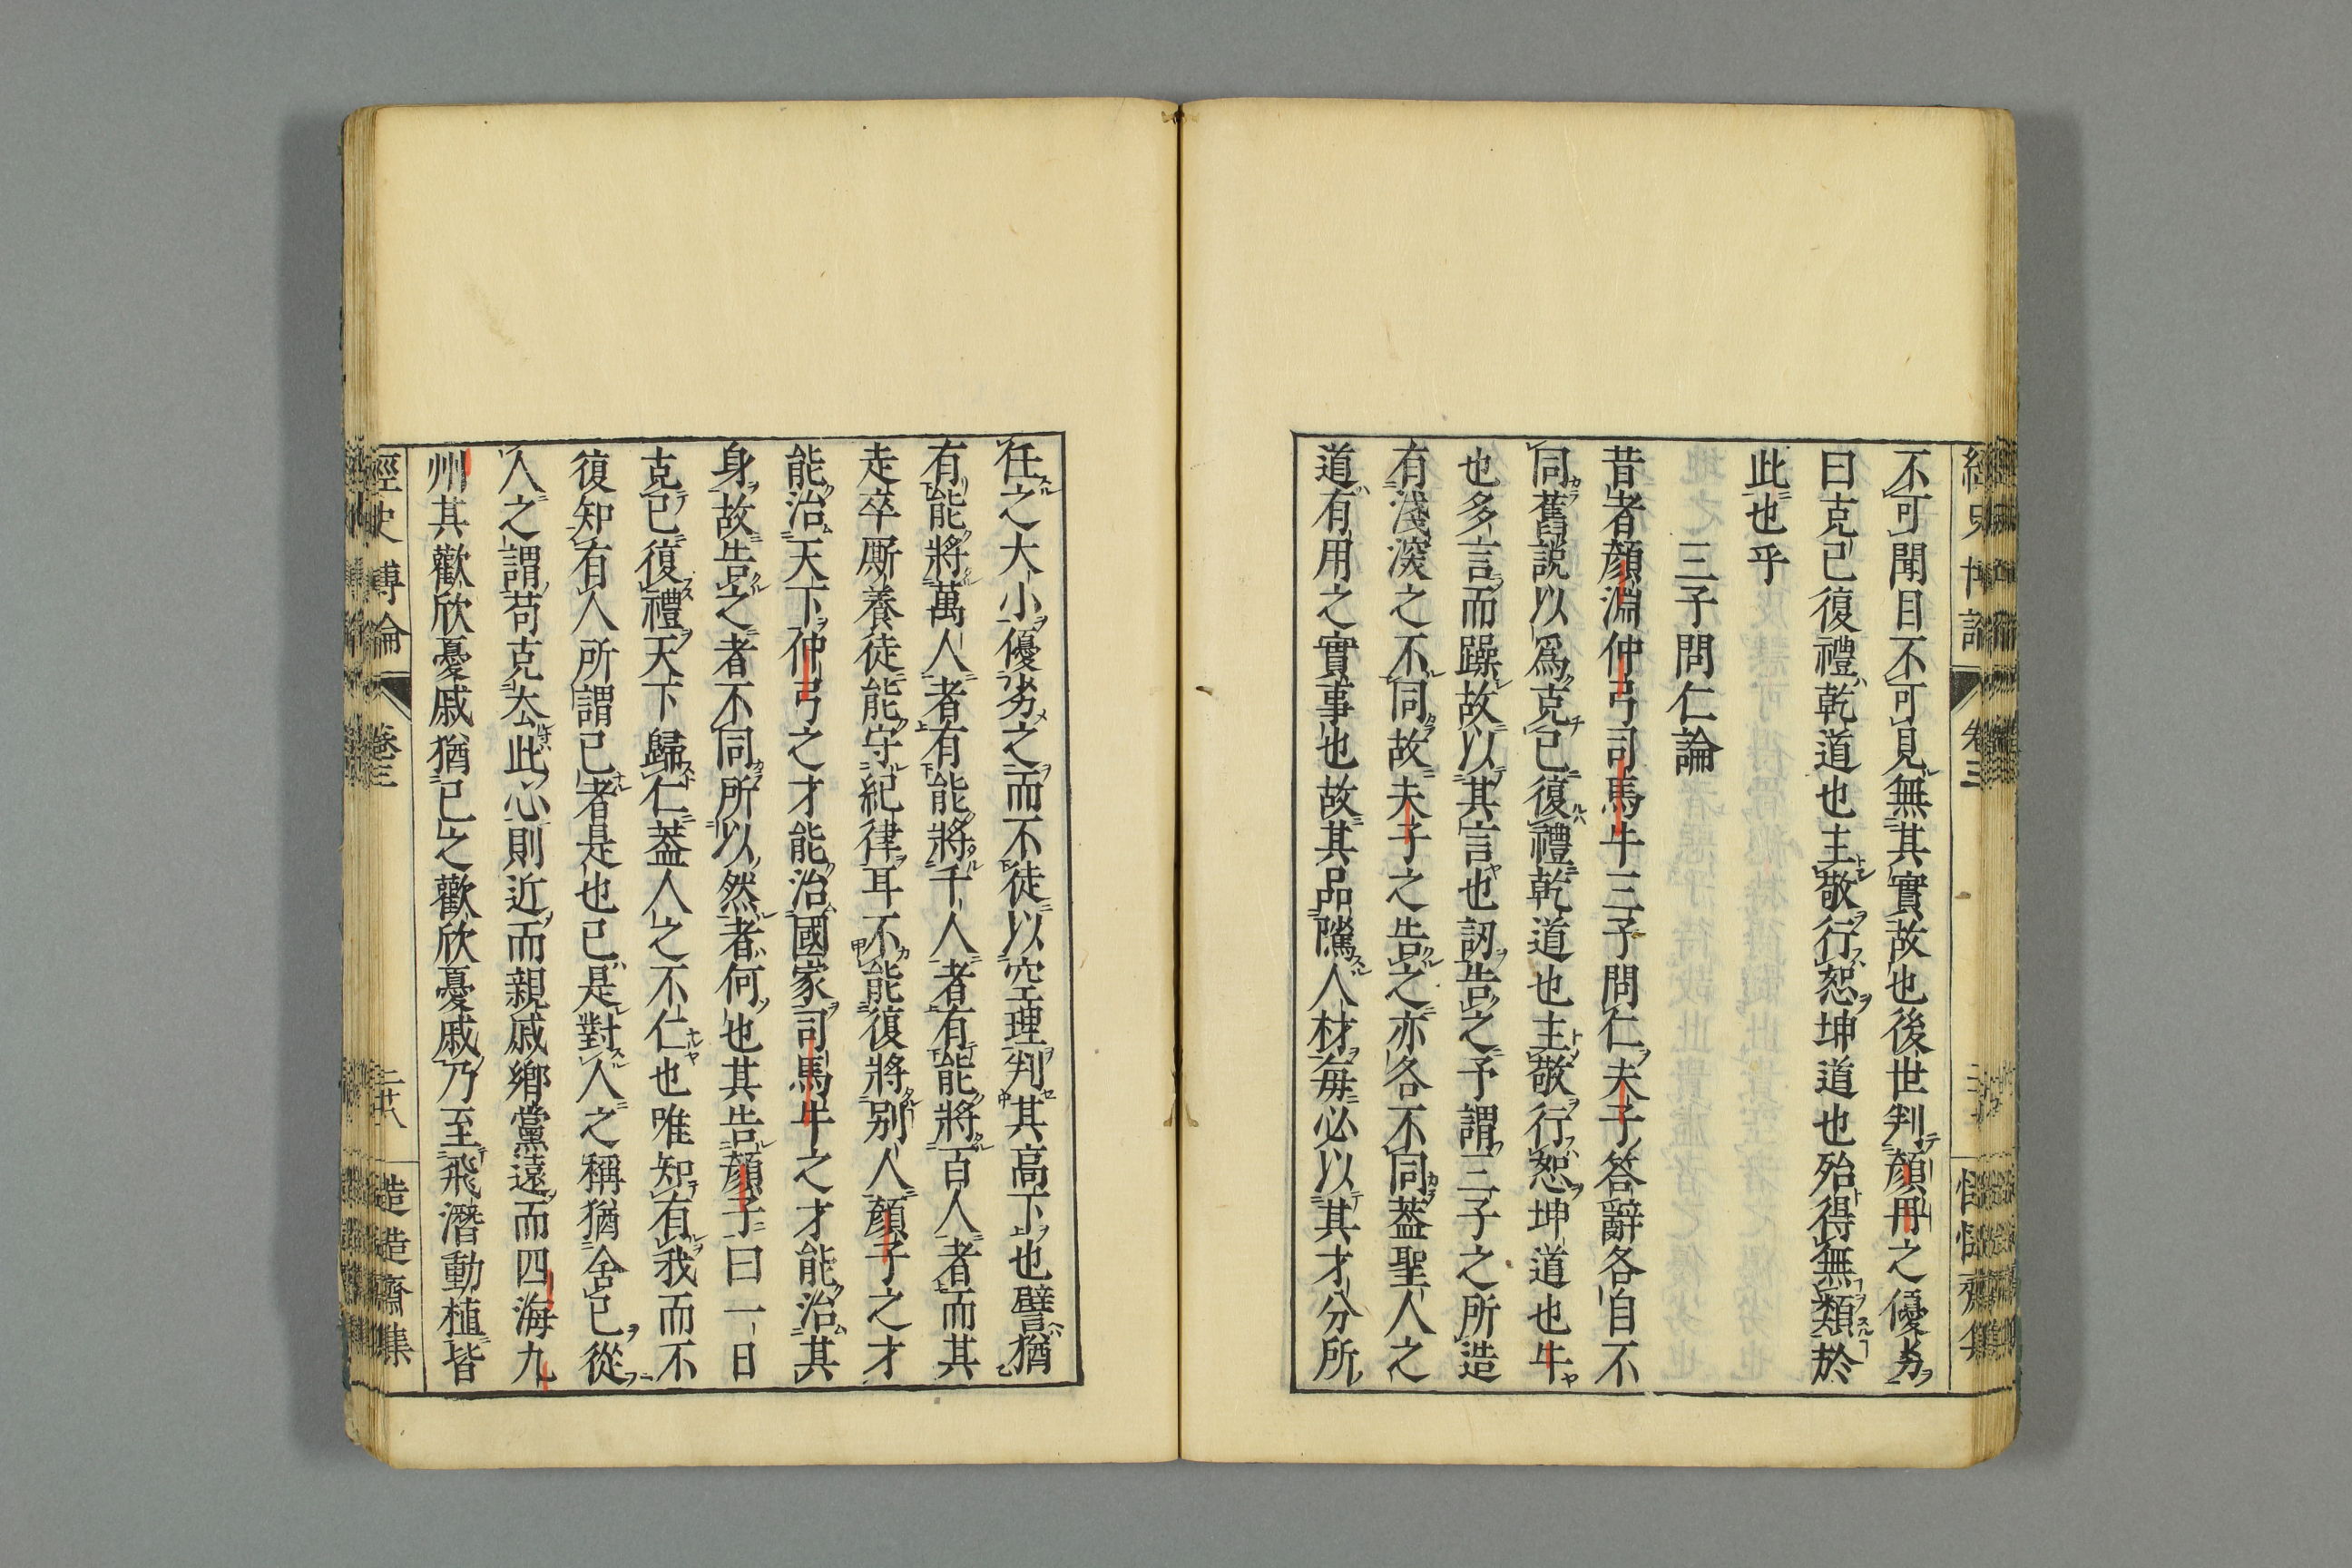 不可聞目不可見無其實故也後世判顏冉之優劣
曰克己復禮乾道也主敬行恕坤道也殆得無類於
此也乎
三子問仁論
昔者顏淵仲弓司馬牛三子問仁夫子答辭各自不
同舊説以爲克己復禮乾道也主敬行恕坤道也牛
也多言而躁故以其言也訒告之予謂三子之所造
有淺深之不同故夫子之告之亦各不同蓋聖人之
道有用之實事也故其品隲人材毎必以其才分所
任之大小優劣之而不徒以空理判其高下也譬猶
有能將萬人者有能將千人者有能將百人者而其
走卒厮養徒能守紀律耳不能復將別人顏子之才
能治天下仲弓之才能治國家司馬牛之才能治其
身故告之者不同所以然者何也其告顏子曰一日
克己復禮天下歸仁蓋人之不仁也唯知有我而不
復知有人所謂己者是也己是對人之稱猶舍己從
人之謂苟克去此心則近而親戚鄉黨遠而四海九
州其歡欣憂戚猶己之歡欣憂戚乃至飛潛動植皆
經史博論
卷三
二十八
造造齋集